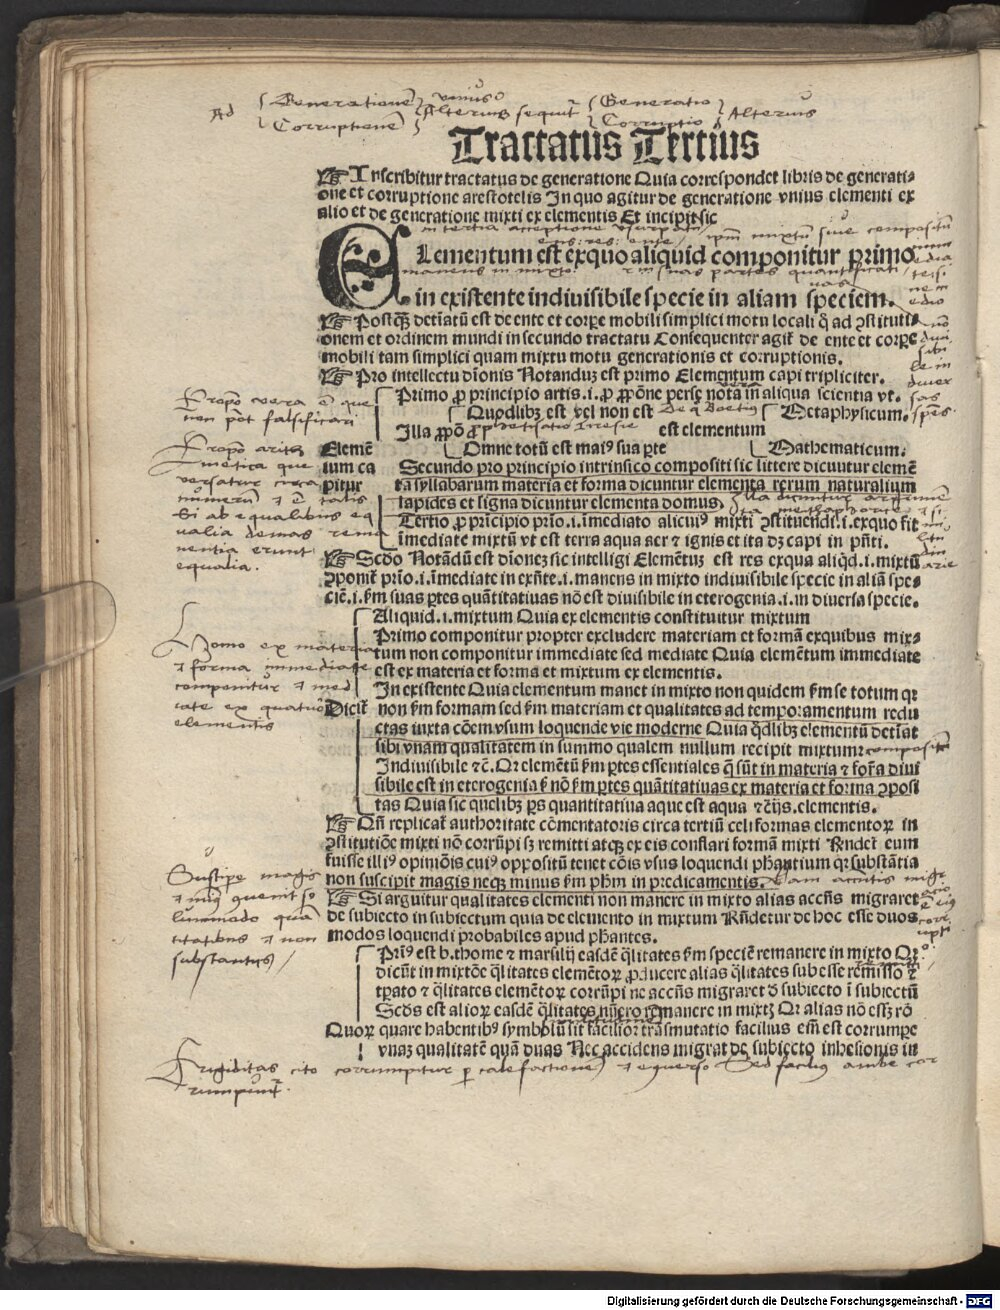 Ad Generationē vnius Generatio Alterius
Corruptionē Alterius sequit̄ Corruptio
Tractatus Tertius
Inscribitur tractatus de generatione Quia correspondet libris de generati-
one et corruptione arestotelis In quo agitur de generatione vnius elementi ex
alio et de generatione mixti ex elementis Et incipit sic
Elementum est ex quo aliquid componitur primo
in existente indiuisibile specie in aliam speciem.
Postq̄ȝ det̄iatū est de ente et corp̄e mobili simplici motu locali q̄ ad ꝯstituti-
onem et ordinem mundi in secundo tractatu Consequenter agit̄ de ente et corp̄e
mobili tam simplici quam mixtu motu generationis et corruptionis.
Pro intellectu d̄ionis Notanduȝ est primo Elementum capi tripliciter.
Primo ꝓ principio artis .i. ꝓ ꝓpōne perse nota in aliqua scientia vt.
Quodlibȝ est vel non est Metaphysicum.
Illa ꝓpō est elementum
Elemē Omne totū est maiꝰ sua pte Mathematicum.
tum ca Secundo pro principio intrinsico compositi sic littere dicuntur elemē
pitur ta syllabarum materia et forma dicuntur elementa rerum naturalium
lapides et ligna dicuntur elementa domus.
Tertio ꝓ principio prīo .i. īmediato alicuiꝰ mixti ꝯstituendi .i. ex quo fit
īmediate mixtū vt est terra aqua aer ⁊ ignis et ita dȝ capi in pn̄ti.
Scd̄o Notādū est d̄ioneȝ sic intelligi Elemētuȝ est res ex qua aliqd̄ .i. mixtū
ꝯponit̄ prīo .i. īmediate in exn̄te .i. manens in mixto indiuisibile specie in aliā spe-
ciē .i. ẜm suas ptes quātitatiuas nō est diuisibile in eterogenia .i. in diuersa specie.
Aliquid .i. mixtum Quia ex elementis constituitur mixtum
Primo componitur propter excludere materiam et formā ex quibus mix-
tum non componitur immediate sed mediate Quia elemētum immediate
est ex materia et forma et mixtum ex elementis.
In existente Quia elementum manet in mixto non quidem ẜm se totum qr
Dicit̄ non ẜm formam sed ẜm materiam et qualitates ad temporamentum redu
ctas iuxta cōem vsum loquende vie moderne Quia qd̄libȝ elementū det̄iat
sibi vnam qualitatem in summo qualem nullum recipit mixtum
Indiuisibile ⁊c̄. Qr elemētū ẜm ptes essentiales q̄ sūt in materia ⁊ for̄a diui
sibile est in eterogenia s̄ nō ẜm ptes quātitatiuas ex materia et forma ꝯposi
tas Quia sic quelibȝ ps quantitatiua aque est aqua
Qn̄ replicat̄ authoritate cōmentatoris circa tertiū celi formas elementoꝝ in
ꝯstitutiōe mixti nō corrūpi sȝ remitti atqȝ ex eis conflari formā mixti Rn̄det̄ eum
fuisse illiꝰ opiniōis cuiꝰ oppositū tenet cōis vsus loquendi ph̄antium qr substātia
non suscipit magis neqȝ minus ẜm ph̄m in predicamentis.
Si arguitur qualitates elementi non manere in mixto alias accn̄s migraret
de subiecto in subiectum quia de elemento in mixtum Rn̄detur de hoc esse duos
modos loquendi probabiles apud ph̄antes.
Primꝰ est b. thome ⁊ marsilij easdē q̄litates ẜm speciē remanere in mixto Qr
dicūt in mixtōe q̄litates elemētoꝝ ꝓducere alias q̄litates sub esse remisso ⁊
tꝑato ⁊ q̄litates elemētoꝝ corrūpi ne accn̄s migraret d̄ subiecto ī subiectū
Scd̄s est alioꝝ easdē q̄litates nūero remanere in mixto Qr alias nō essȝ rō
Quoꝝ quare habentibꝰ symbolū sit facilior trāsmutatio facilius esn̄ est corrumpe
vnaȝ qualitatē quā duas Nec accidens migrat de subiecto inhesionis in
Propō vera ē que
non pōt falsificari
Propō arith
metica que
versatur circa
numerū ⁊ ē talis
Si ab equalibus eq
ualia demas rema
nentia erunt
equalia.
Homo ex materia
⁊ forma immediate
componitur ⁊ med
iate ex quatuor
elementis
Suscipe magis
⁊ minꝰ quenit so
lummodo quā
titatibus ⁊ non
substantijs
Frigiditas cito corrumpitur p calefactionē ⁊ e querso Sed facilꝰ ambe cor
rumpunt̄.
Digitalisierung gefördert durch die Deutsche Forschungsgemeinschaft - DFG